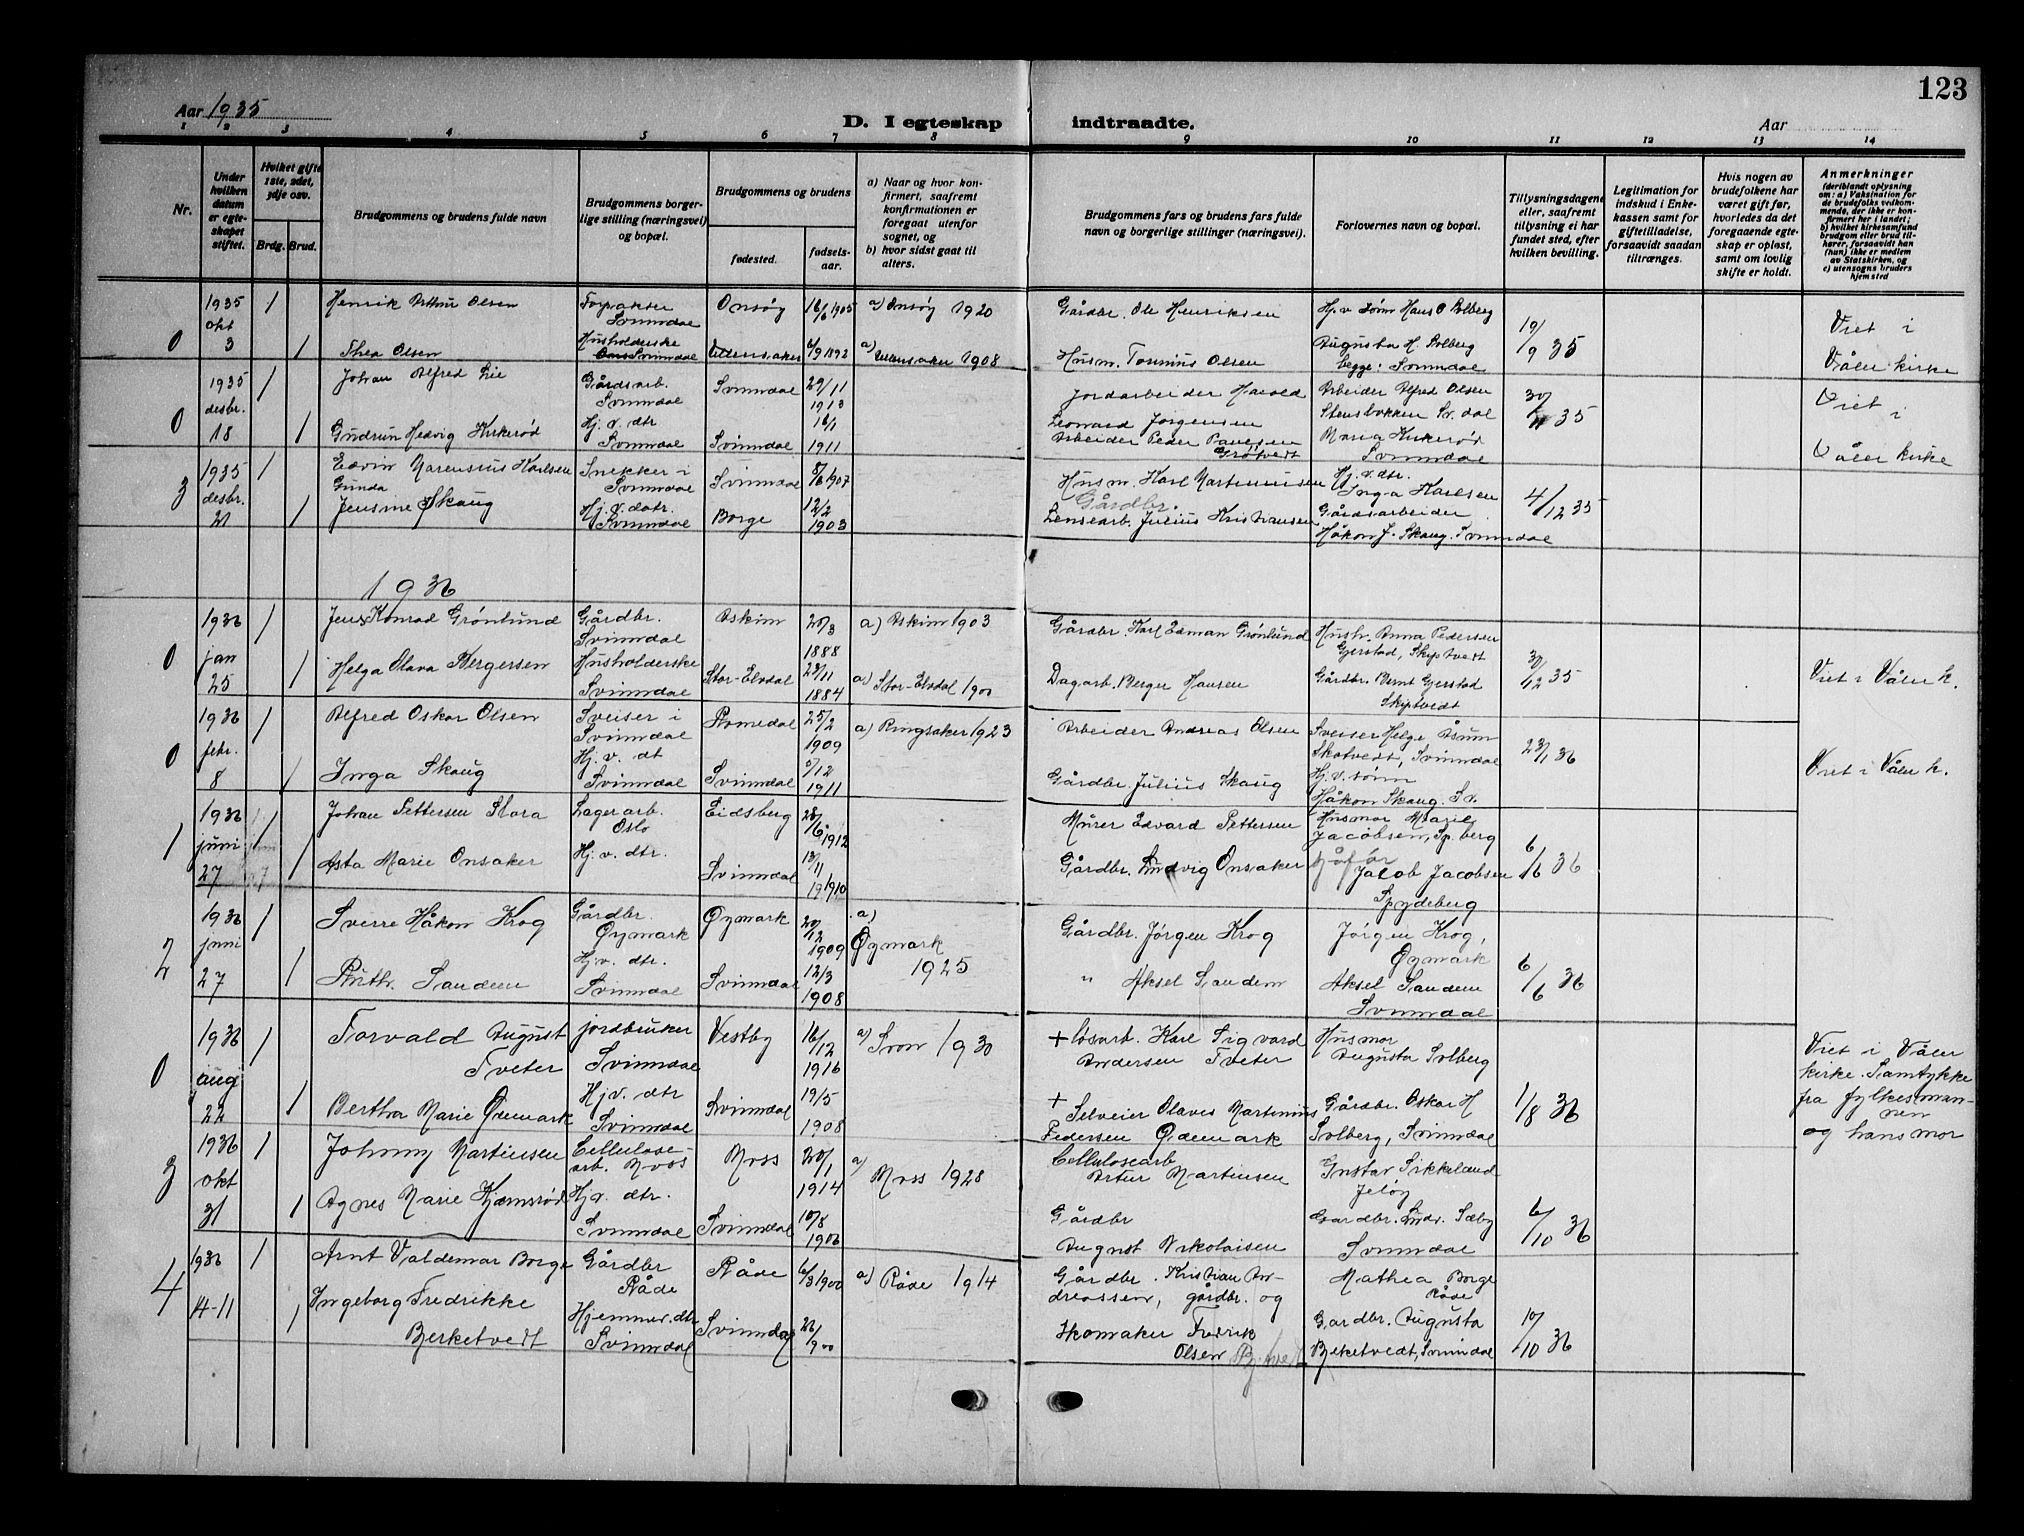 123
Aar 1935
D. I egteskap indtraadte.
Aar
1 2 3 4 5 6 7 8 9 10 11 12 13 14
Nr.
Under hvilken datum er egteskapet stiftet.
Hvilket gifte 1ste, 2det, 3dje osv.
Brdg. Brud.
Brudgommens og brudens fulde navn
Brudgommens borgerlige stilling (næringsvei) og bopæl.
Brudgommens og brudens
fødested. fødselsaar.
a) Naar og hvor konfirmert, saafremt konfirmationen er foregaat utenfor sognet, og
b) hvor sidst gaat til alters.
Brudgommens fars og brudens fars fulde navn og borgerlige stillinger (næringsvei).
Forlovernes navn og bopæl.
Tillysningsdagene eller, saafremt tillysning ei har fundet sted, efter hvilken bevilling.
Legitimation for indskud i Enkekassen samt for giftetilladelse, forsaavidt saadan tiltrænges.
Hvis nogen av brudefolkene har været gift før, hvorledes da det foregaaende egteskap er opløst, samt om lovlig skifte er holdt.
Anmerkninger
(deriblandt oplysning om: a) Vaksination for de brudefolks vedkommende, der ikke er konfirmert her i landet; b) hvilket kirkesamfund brudgom eller brud tilhører, forsaavidt han (hun) ikke er medlem av Statskirken, og c) utensogns bruders hjemsted
0 1935 okt 3 1 Henrik Arthur Olsen Forpakter Svinndal Onsøy 16/6 1905 a) Onsøy 1920 Gårdbr. Ole Henriksen Hj.v. sønn Hans O Solberg 19/9 35 Viet i
1 Thea Olsen Husholderske Svinndal Ullensaker 6/9 1892 a) Ullensaker 1908 Husm. Olsen Augusta H. Solberg begge: Svinndal Våler kirke
0 1935 desbr. 18 1 Johan Alfred Lie Gårdsarb. Svinndal Svinndal 29/11 1913 Jordarbeider Harald Leonard Jørgensen Arbeider Alfred Olsen Stensbakken Sv.dal 30/11 35 Viet i
1 Gudrun Hedvig Kirkerød Hj. v. dtr Svinndal Svinndal 16/1 1911 Arbeider Peder Paulsen Grøtvedt Maria Kirkerød Svinndal Våler kirke
3 1935 desbr. 21 1 Edvin Marensius Karlsen Snekker i Svinndal Svinndal 8/6 1907 Husm. Karl Martinusen Hj. v. dtr. Inga Karlsen 4/12 35
1 Gunda Jensine Skaug Hj. v. datr. Svinndal Borge 12/2 1903 Gårdbr. Lensearb. Julius Kristiansen Gårdsarbeider Håkon J. Skaug. Svinndal
1936
0 1936 jan 25 1 Jens Konrad Grønlund Gårdbr. Svinndal Askim 20/3 1888 a) Askim 1903 Gårdbr. Karl Edman Grønlund Hush. Anna Pedersen Gjerstad, Skiptvedt 30/12 35 Viet i Våler k.
1 Helga Olava Bergersen Husholderske Svinndal Stor-Elvdal 23/11 1884 a) Stor-Elvdal 1900 Dagarb. Berger Hansen Gårdbr. Bernt Gjerstad Skiptvedt
0 1936 febr. 8 1 Alfred Oskar Olsen Sveiser i Svinndal Romedal 25/2 1909 a) Ringsaker 1923 Arbeider Andreas Olsen Sveiser Helge Åsum Skotvedt, Svinndal 23/1 36 Viet i Våler k.
1 Inga Skaug Hj. v. dt Svinndal Svinndal 5/12 1911 Gårdbr. Julius Skaug Hj. v. sønn Håkon Skaug. Sv.
1 1936 juni 27 1 Johan Pettersen Stora Lagerarb. Oslo Eidsberg 28/6 1912 Murer Edvard Pettersen Husmor Marie Jacobsen, Sp.berg 6/6 36
1 Asta Marie Onsaker Hj. v. dtr. Svinndal 13/11 1910 Gårdbr. Ludvig Onsaker Jacob Jacobsen Spydeberg
2 1936 juni 27 1 Sverre Håkon Krog Gårdbr. Øymark Øymark 20/12 1909 a) Øymark 1925 Gårdbr. Jørgen Krog Jørgen Krog, Øymark 6/6 36
1 Ruth Sandem Hj. v. dtr. Svinndal Svinndal 12/3 1908 " Aksel Sandem Aksel Sandem Svinndal
0 1936 aug 22 1 Torvald August Tveter jordbruker Svinndal Vestby 16/12 1916 a) Son 1930 + løsarb. Karl Sigvard Andersen Tveter Husmor Augusta Solberg 1/8 36 Viet i Våler kirke. Samtykke fra fylkesmannen og hans mor
1 Bertha Marie Ødemark Hj. v. dtr Svinndal Svinndal 19/5 1908 + Selveier Olaves Martinius Pedersen Ødemark Gårdbr. Oskar H Solberg, Svinndal
3 1936 okt 31 1 Johnny Martinsen Cellulosearb. Moss Moss 20/1 1914 a) Moss 1928 Cellulosearb Artur Martinsen Gustav Sikkeland Jeløy 6/10 36
1 Agnes Marie Kjæmsrød Hj. v. dtr. Svinndal Svinndal 10/8 1906 Gårdbr August Nikolaisen Gardbr. Ludv. Sæby Svinndal
4 1936 14-11 1 Arnt Valdemar Borge Gårdbr Råde Råde 6/3 1900 a) Råde 1914 Gårdbr. Kristian Andreassen, gårdbr. og Mathea Borge Råde 10/10 36
1 Ingeborg Fredrikke Berketvedt Hjemmev. dtr Svinndal Svinndal 22/1 900 Skomaker Fredrik Olsen Gardbr. Augusta Bjerketvedt, Svinndal